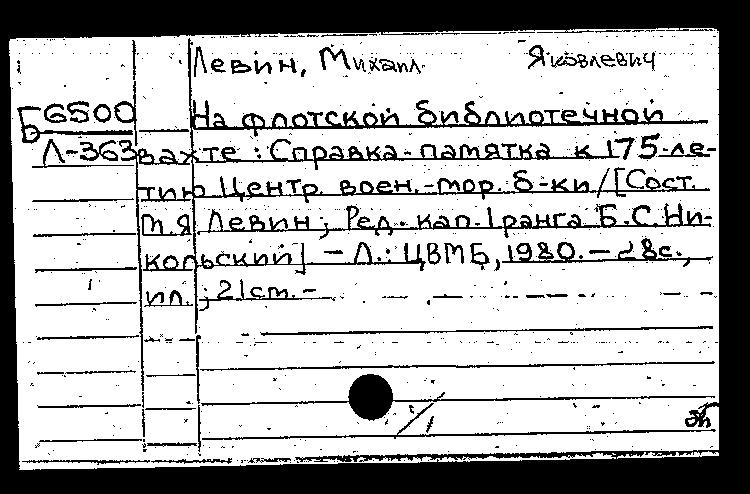 Левин, Михаил Яковлевич
Б6500 На флотской библиотечной
Л-363 вахте : Справка-памятка к 175-ле-
тию Центр. воен.-мор. б-ки / [Сост.
М.Я. Левин ; Ред. кап. 1 ранга Б.С. Ни-
кольский] – Л.: ЦВМБ, 1980. – 28с.,
ил. ; 21 cm. –